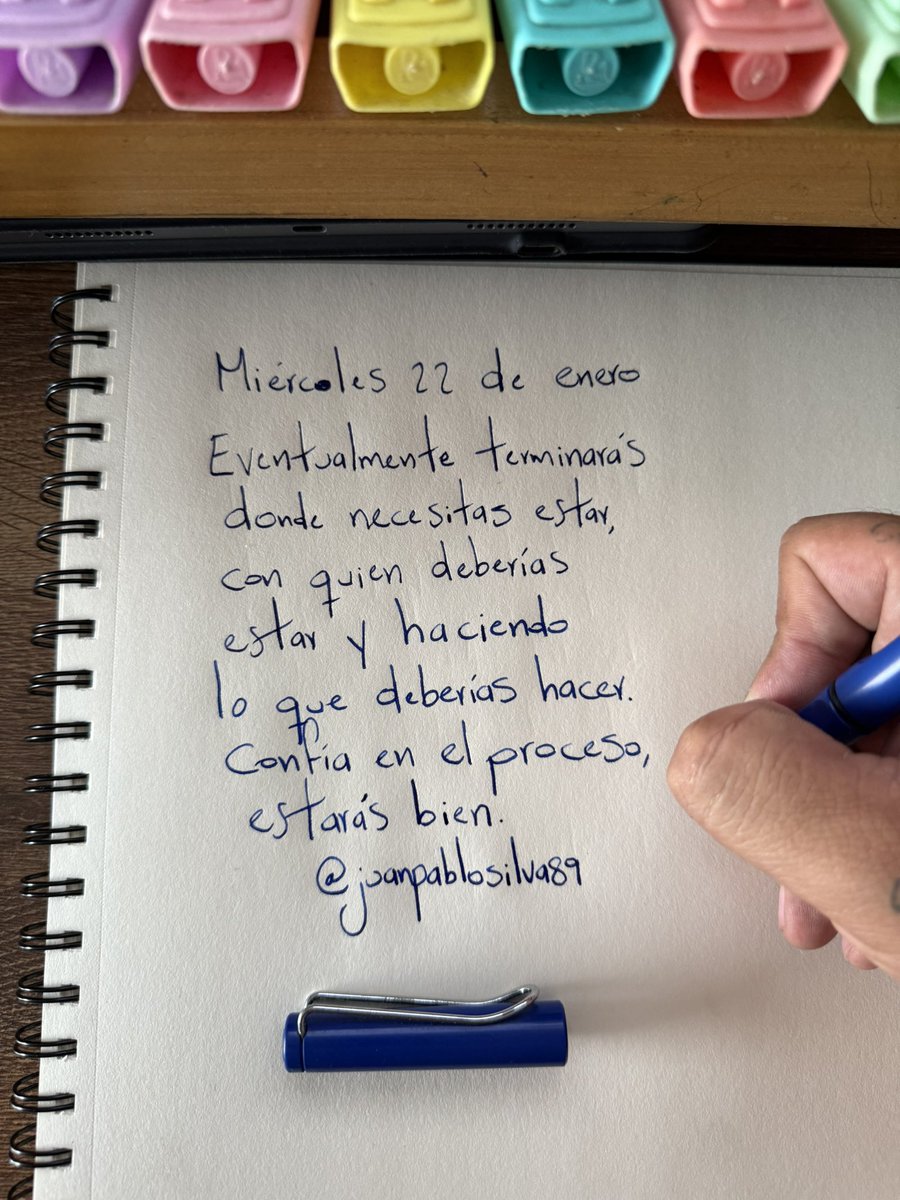 Miércoles 22 de enero
Eventualmente terminarás
donde necesitas estar,
con quien deberías
estar y haciendo
lo que deberías hacer.
Confía en el proceso,
estarás bien.
@juanpablosilva89